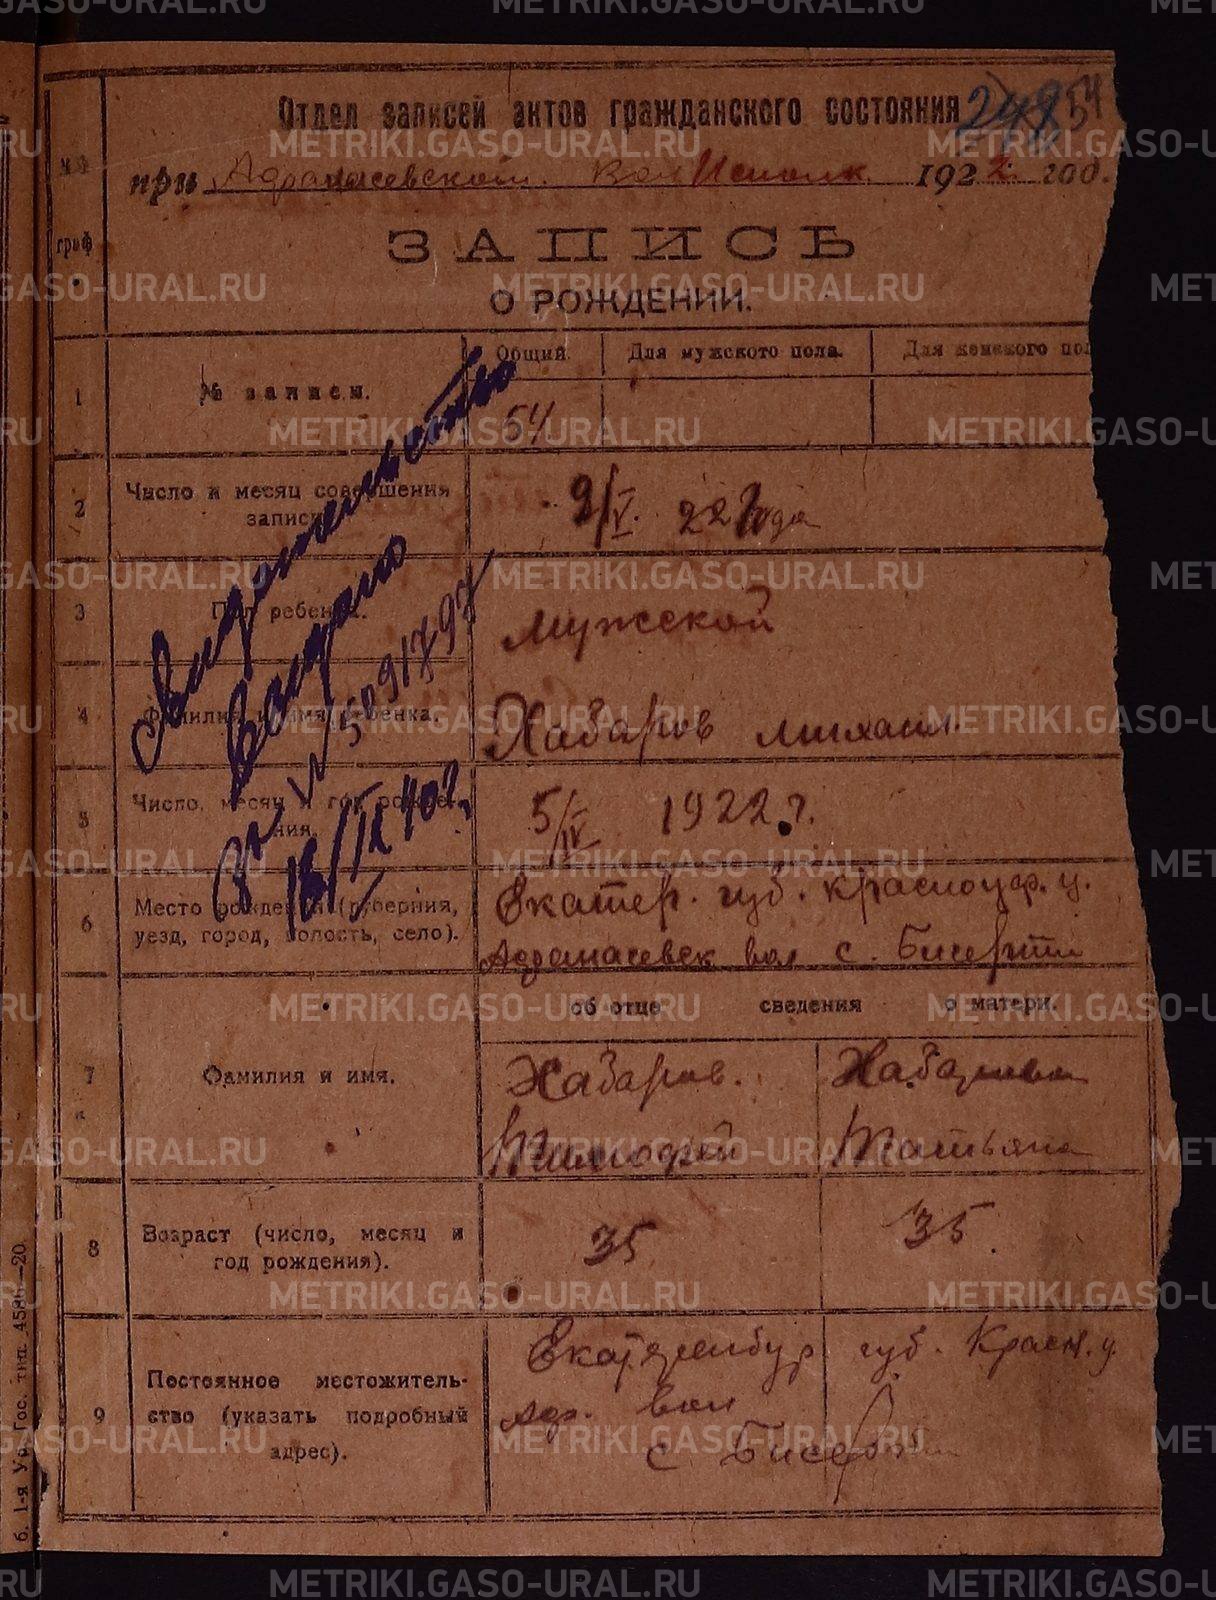 Отдел записей актов гражданского состояния 248 54
при Афанасевском. Вол Исполк. 1922 год.
№№
граф.
ЗАПИСЬ
О РОЖДЕНИИ.
1 № записи. Общий. Для мужского пола. Для женского пол
54
2 Число и месяц совершения записи 9/V. 22 года
3 Пол ребенка. мужской
4 Фамилия и имя ребенка. Хабаров Михаил.
5 Число, месяц и год рождения. 5/IV 1922 г.
6 Место рождения (губерния, Екатер. губ. Красноуф. у.
уезд, город, волость, село). Афанасевск вол с. Бисерти
Свидетельство
Выдано
за № 5091797
16/IX 40 г.
об отце сведения о матери.
7 Фамилия и имя. Хабаров. Хабарова
Тимофей Татьяна
8 Возраст (число, месяц и
год рождения). 35 35.
9 Постоянное местожитель-
ство (указать подробный
адрес).
Екатеринбур губ. Красн. у.
Аф. вол
с Бисерти
б. 1-я Ур. Гос. тип. 4586—20.
METRIKI.GASO-URAL.RU